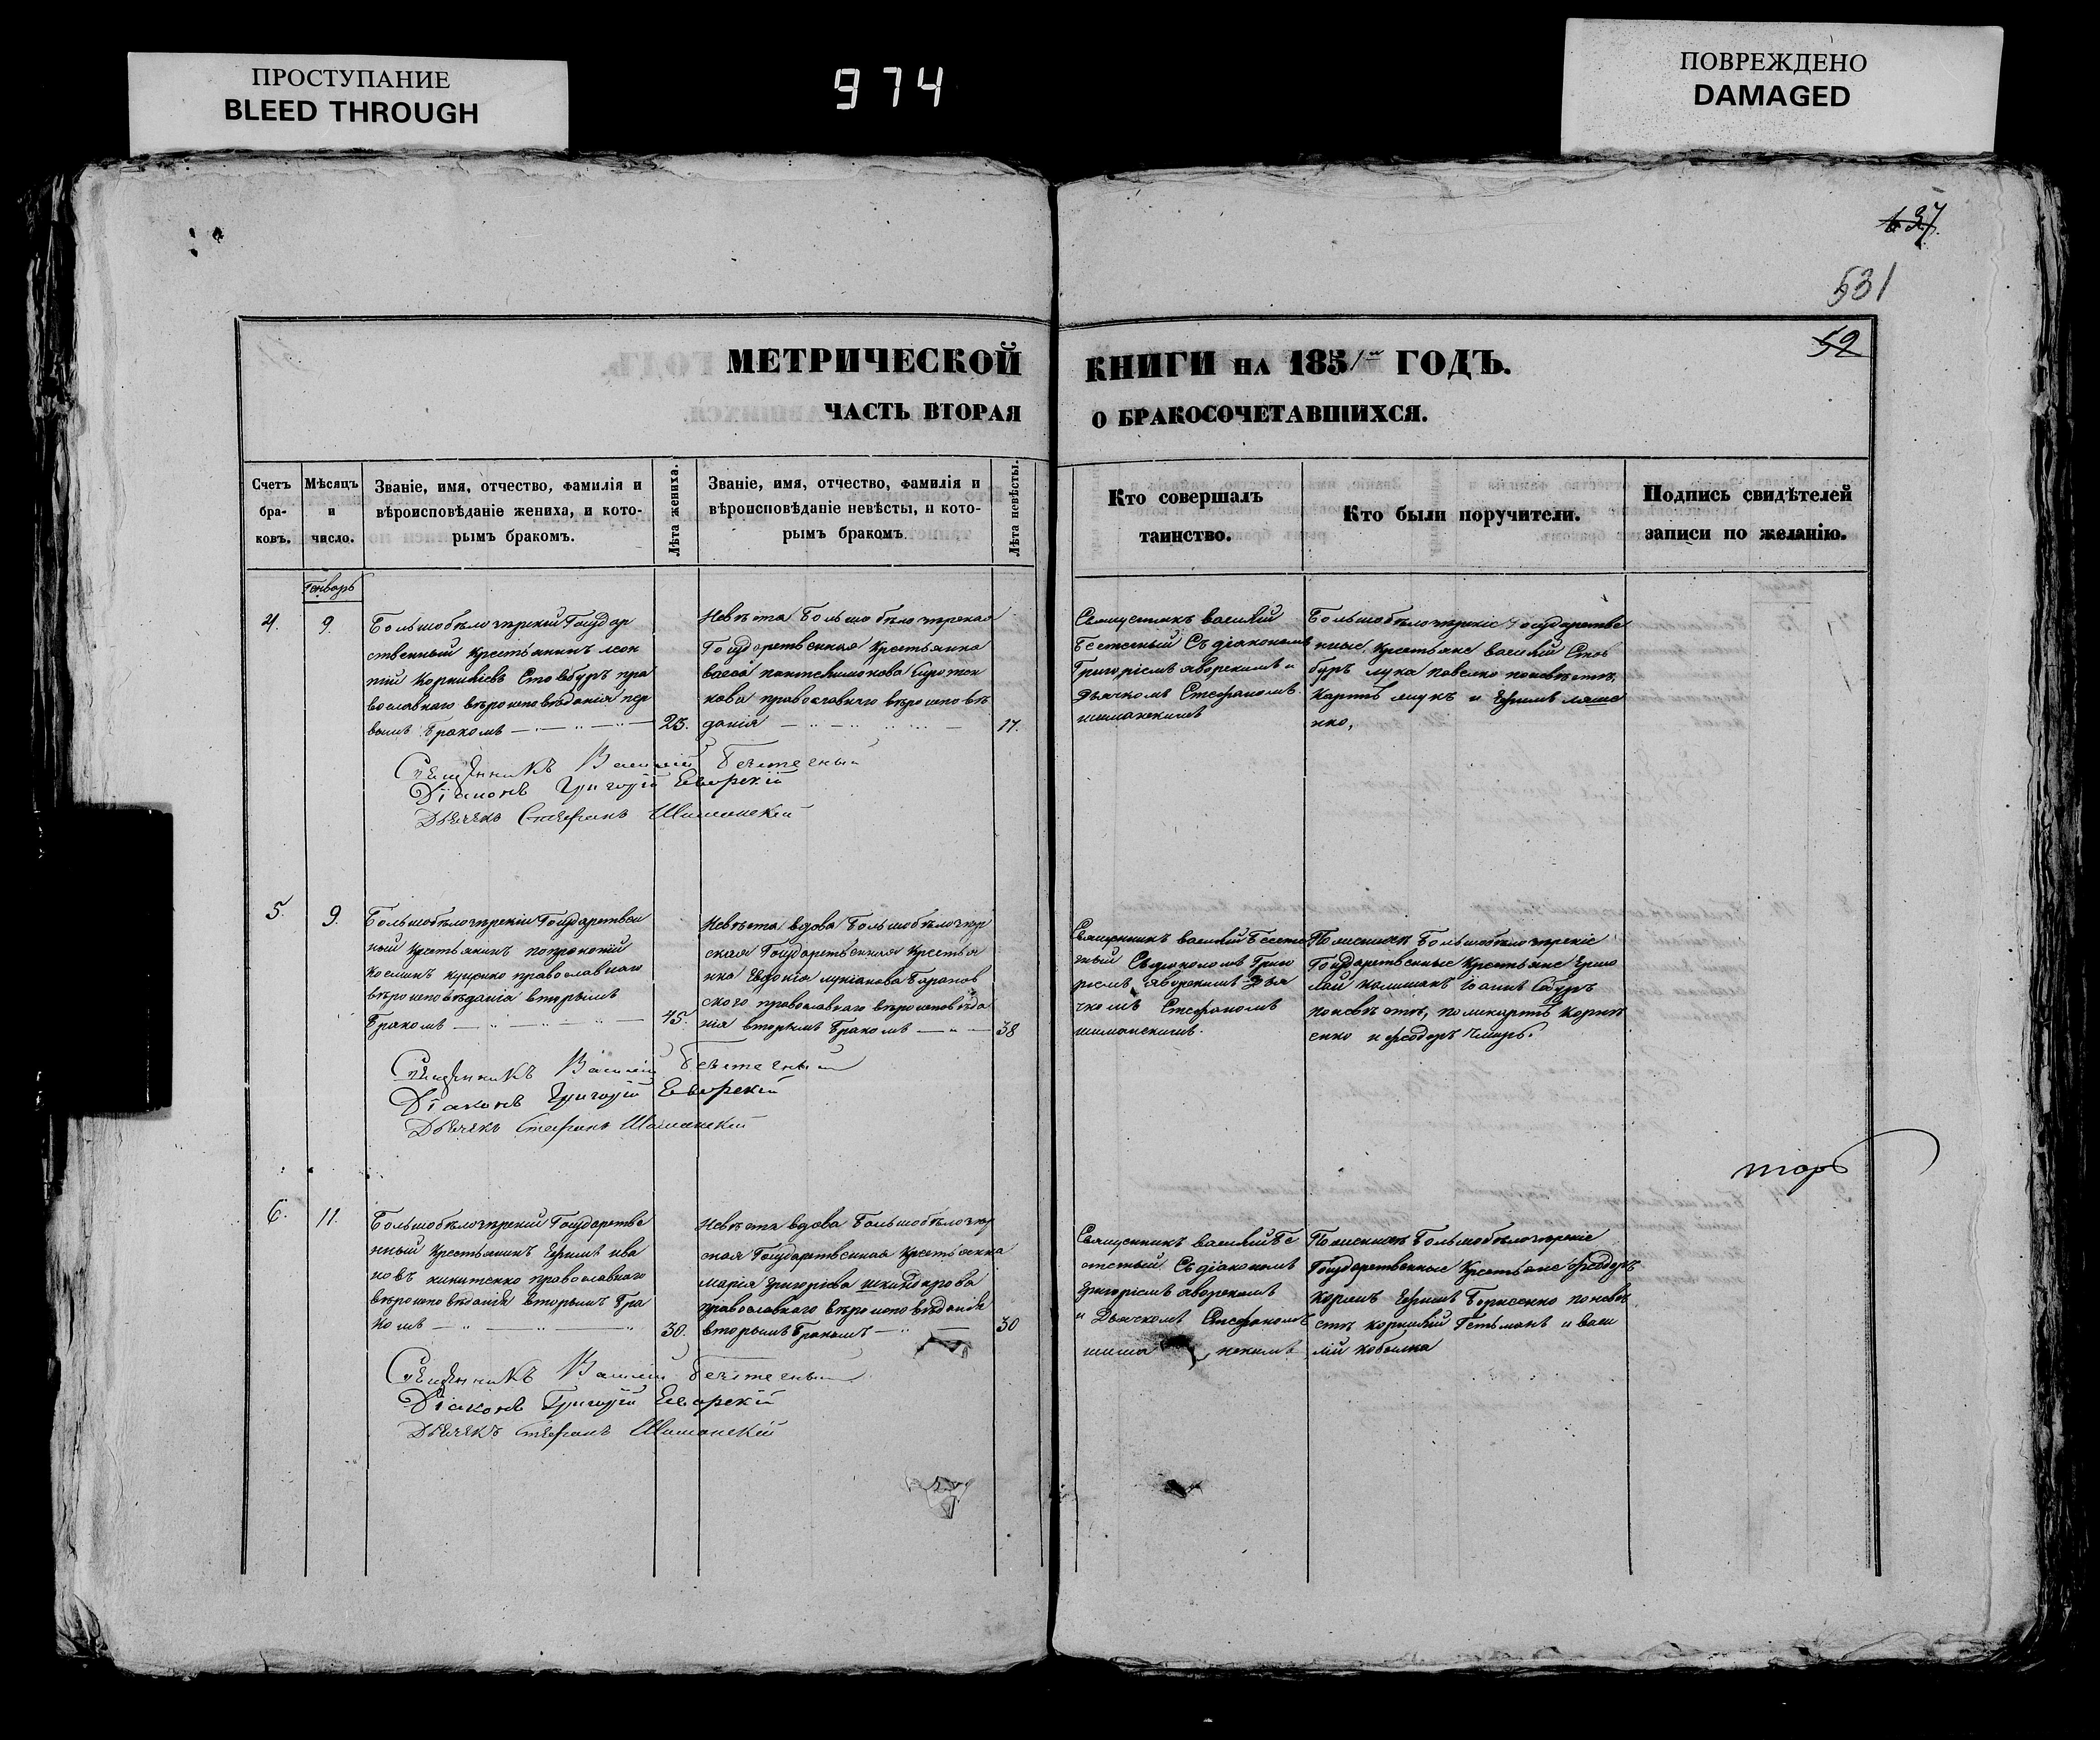 ПРОСТУПАНИЕ
BLEED THROUGH
974
ПОВРЕЖДЕНО
DAMAGED
531
52
МЕТРИЧЕСКОЙ
КНИГИ НА 1851 ГОДЪ.
ЧАСТЬ ВТОРАЯ
О БРАКОСОЧЕТАВШИХСЯ.
Счетъ
бра-
ковъ.
Мѣсяцъ
и
число.
Званіе, имя, отчество, фамилія и
вѣроисповѣданіе жениха, и кото-
рымъ бракомъ.
Лѣта жениха.
Званіе, имя, отчество, фамилія и
вѣроисповѣданіе невѣсты, и кото-
рымъ бракомъ.
Лѣта невѣсты.
Кто совершалъ
таинство.
Кто были поручители.
Подпись свидѣтелей
записи по желанію.
Генваръ
4.
9.
Большобѣлочерскій Государ
ственный Крестьянинъ леон
тій Корниліевъ Столбуръ пра
вославнаго вѣроисповѣданія пер
вымъ Бракомъ
25.
Невѣста Большобѣлочерская
Государственная Крестьянка
пантелимонова
кова православнаго вѣроисповѣ
данія
17.
Священикъ василій
Безтечный Съ діакономъ
Григоріемъ яворскимъ и
Дьячкомъ Стефаномъ
шиманскимъ
Большобѣлочерскіе Государстве
нные Крестьяне василій Стол
буръ лука павелко поневѣстѣ,
Карпъ и Ефимъ ляше
нко,
Священникъ Василій Безтечный
Діаконъ Григорій Еворскій
Дьячекъ Стефанъ Шиманскій
5.
9.
Большобѣлочерскій Государствен
ный Крестьянинъ
Косминъ куценко православнаго
вѣроисповѣданія вторымъ
Бракомъ
45.
Невѣста вдова Большобѣлочер
ская Государственная Крестья
нка Евдокія лукіанова Баранов
ского православнаго вѣроисповѣда
нія вторымъ Бракомъ
38
Священникъ василій Безте
чный Съ діакономъ Григо
ріемъ яворскимъ Дья
чкомъ Стефаномъ
шиманскимъ.
Поженихѣ Большобѣлочерскіе
Государственные Крестьяне Ермо
лай Іоанъ
поневѣстѣ, поликарпъ Корне
енко и феодоръ
Священникъ Василій Безтечный
Діаконъ Григорій Еворскій
Дьячекъ Стефанъ Шиманскій
6.
11.
Большобѣлочерскій Государстве
нный Крестьянинъ Ефимъ ива
новъ никитенко православнаго
вѣроисповѣданія вторымъ Бра
комъ
30.
Невѣста вдова Большобѣлочер
ская Государственная Крестьянка
марія григоріева
православнаго вѣроисповѣданія
вторымъ Бракомъ
30
Священникъ василій Бе
зтечный Съ діакономъ
григоріемъ яворскимъ
и Дьячкомъ Стефаномъ
шима нскимъ
Поженихѣ Большобѣлочерскіе
Государственные Крестьяне феодоръ
Ефимъ Борисенко поневѣ
стѣ корнилій Гетьманъ и васи
лій кобылка
Священникъ Василій Безтечный
Діаконъ Григорій Еворскій
Дьячекъ Стефанъ Шиманскій